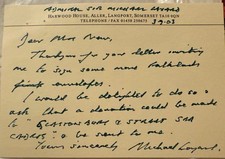 ADMIRAL SIR MICHAEL LAYARD
HARWOOD HOUSE, ALLER, LANGPORT, SOMERSET TA10 0QN
TELEPHONE / FAX 01458
3.9.03
Dear Mrs New,
Thank you for your letter inviting
me to sign some more Falklands
first envelopes.
I would be delighted to do so &
ask that a donation could be made
to "GLASTONBURY & STREET SEA
CADETS" to be sent to me.
Michael Layard.